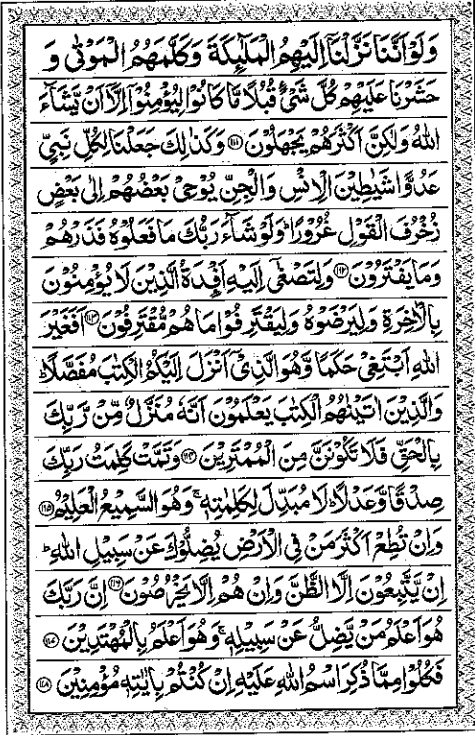 وَلَوْ اَنَّنَا نَزَّلْنَاۤ اِلَيْهِمُ الْمَلٰٓئِكَةَ وَكَلَّمَهُمُ الْمَوْتٰى وَ
حَشَرْنَا عَلَيْهِمْ كُلَّ شَىْءٍ قُبُلًا مَّا كَانُوْا لِيُؤْمِنُوْۤا اِلَّاۤ اَنْ يَّشَآءَ
اللّٰهُ وَلٰكِنَّ اَكْثَرَهُمْ يَجْهَلُوْنَ ﴿۱۱۱﴾ وَكَذٰلِكَ جَعَلْنَا لِكُلِّ نَبِىٍّ
عَدُوًّا شَيٰطِيْنَ الْاِنْسِ وَالْجِنِّ يُوْحِىْ بَعْضُهُمْ اِلٰى بَعْضٍ
زُخْرُفَ الْقَوْلِ غُرُوْرًا ؕ وَلَوْ شَآءَ رَبُّكَ مَا فَعَلُوْهُ فَذَرْهُمْ
وَمَا يَفْتَرُوْنَ ﴿۱۱۲﴾ وَلِتَصْغٰۤى اِلَيْهِ اَفْـِٕدَةُ الَّذِيْنَ لَا يُؤْمِنُوْنَ
بِالْاٰخِرَةِ وَلِيَرْضَوْهُ وَلِيَقْتَرِفُوْا مَا هُمْ مُّقْتَرِفُوْنَ ﴿۱۱۳﴾ اَفَغَيْرَ
اللّٰهِ اَبْتَغِىْ حَكَمًا وَّهُوَ الَّذِىْۤ اَنْزَلَ اِلَيْكُمُ الْكِتٰبَ مُفَصَّلًا ؕ
وَالَّذِيْنَ اٰتَيْنٰهُمُ الْكِتٰبَ يَعْلَمُوْنَ اَنَّهٗ مُنَزَّلٌ مِّنْ رَّبِّكَ
بِالْحَقِّ فَلَا تَكُوْنَنَّ مِنَ الْمُمْتَرِيْنَ ﴿۱۱۴﴾ وَتَمَّتْ كَلِمَتُ رَبِّكَ
صِدْقًا وَّعَدْلًا ؕ لَا مُبَدِّلَ لِكَلِمٰتِهٖ ۚ وَهُوَ السَّمِيْعُ الْعَلِيْمُ ﴿۱۱۵﴾
وَاِنْ تُطِعْ اَكْثَرَ مَنْ فِى الْاَرْضِ يُضِلُّوْكَ عَنْ سَبِيْلِ اللّٰهِ ؕ
اِنْ يَّتَّبِعُوْنَ اِلَّا الظَّنَّ وَاِنْ هُمْ اِلَّا يَخْرُصُوْنَ ﴿۱۱۶﴾ اِنَّ رَبَّكَ
هُوَ اَعْلَمُ مَنْ يَّضِلُّ عَنْ سَبِيْلِهٖ ۚ وَهُوَ اَعْلَمُ بِالْمُهْتَدِيْنَ ﴿۱۱۷﴾
فَكُلُوْا مِمَّا ذُكِرَ اسْمُ اللّٰهِ عَلَيْهِ اِنْ كُنْتُمْ بِاٰيٰتِهٖ مُؤْمِنِيْنَ ﴿۱۱۸﴾